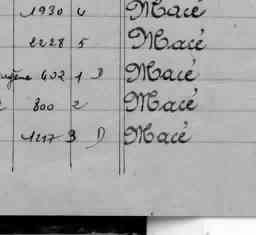 1930 4 Macé
2228 5 Macé
402 1 D Macé
800 2 Macé
1217 3 D Macé